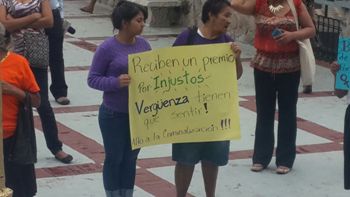 Reciben un premio
Por Injustos
Vergüenza tienen
que sentir!
No a la Criminalización!!!